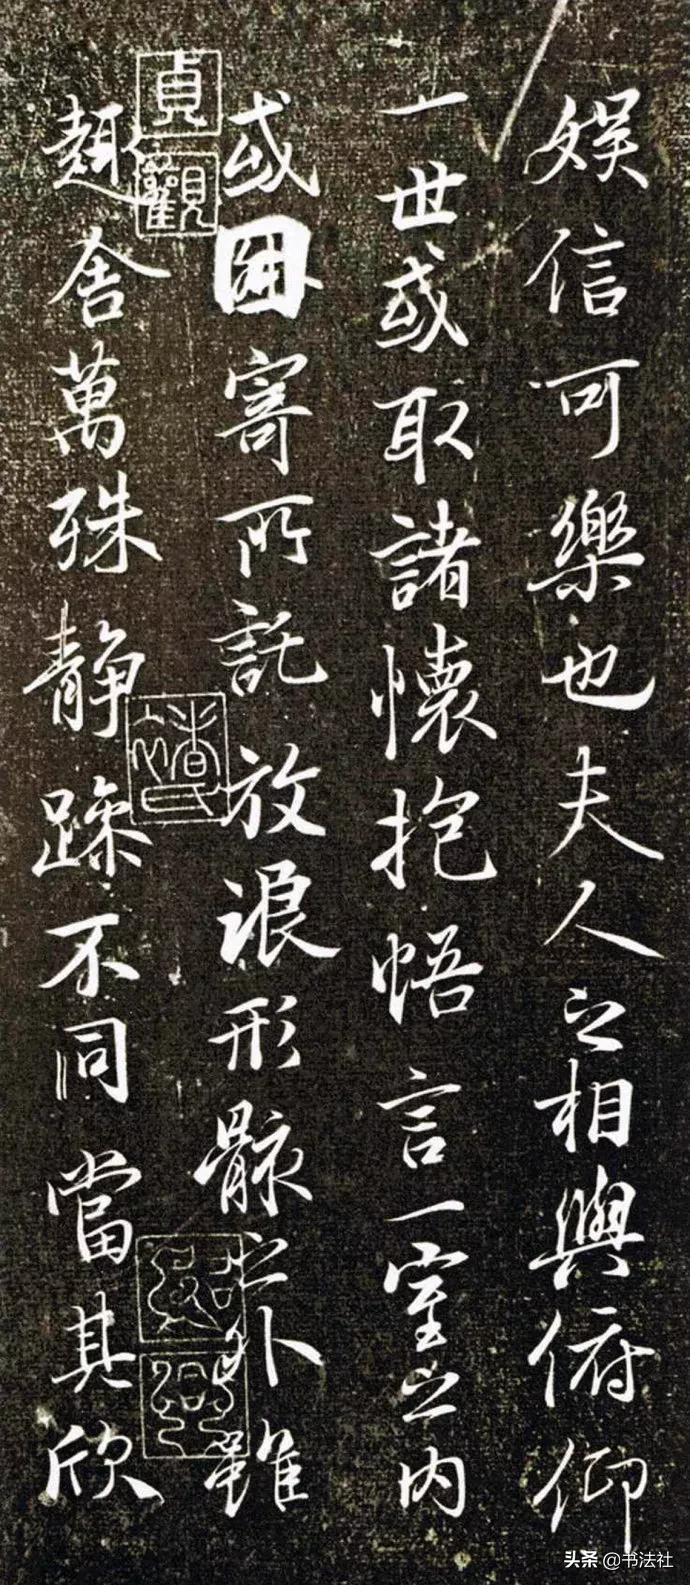 娱信可樂也夫人之相與俯仰
一世或取諸懷抱悟言一室之內
或因寄所託放浪形骸之外雖
趣舍萬殊静躁不同當其欣
貞
觀
头条 @书法社